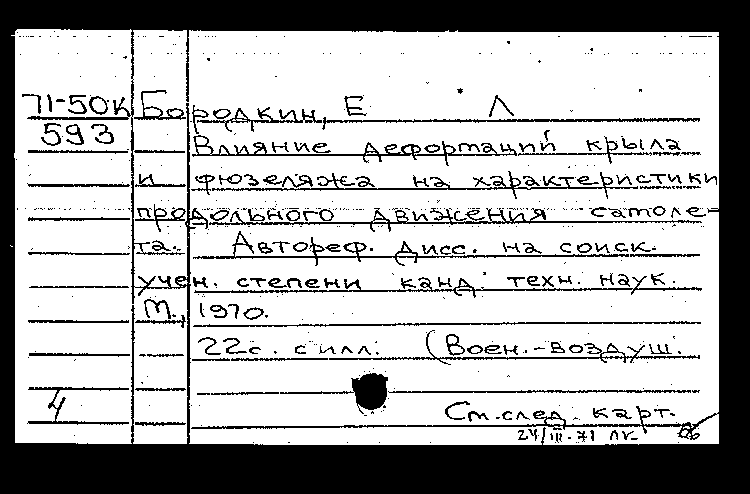 71-50к Бородкин, Е Л
593 Влияние деформаций крыла
и фюзеляжа на характеристики
продольного движения самоле-
та. Автореф. дисс. на соиск.
учен. степени канд. техн. наук.
М., 1970.
22с. с илл. (Воен.-воздуш.
4 См. след. карт.
24/III-71